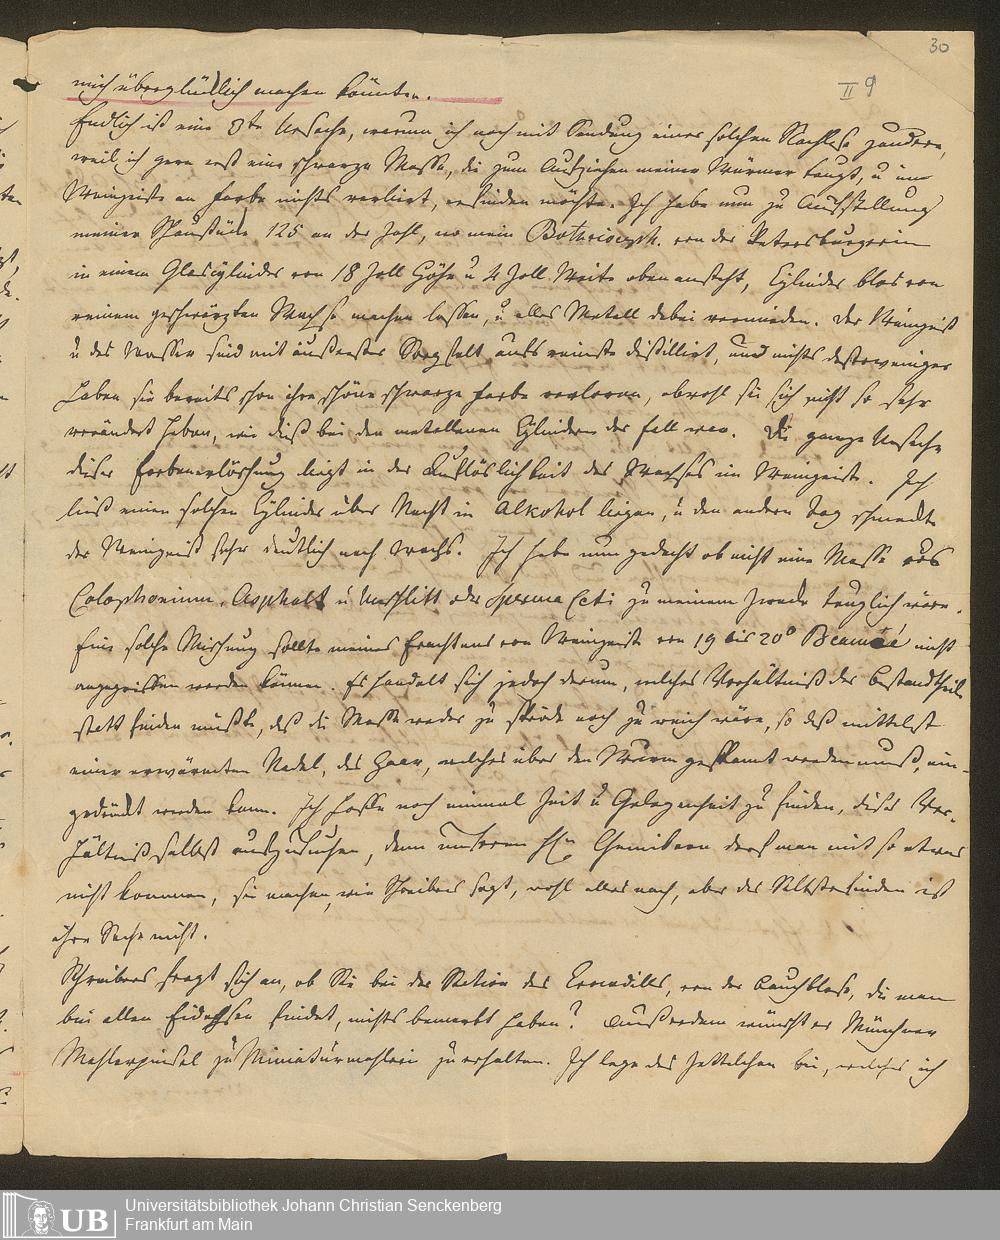 30
II 9
mich überglücklich machen könnten.
Endlich ist eine 3te Ursache, warum ich noch mit Sendung eines solchen Nachlasses zaudere,
weil ich gern erst eine schwarze Masse, die zum Aufziehen meiner Würmer taugt, u im
Weingeiste an Farbe nichts verliert, erfinden möchte. Ich habe nun zu Aufstellung
meiner Schaustücke 125 an der Zahl, wo mein Bothrioceph. von der Petersburgerin
in einem Glascylinder von 18 Zoll Höhe u 4 Zoll Weite oben ansteht, Cylinder blos von
reinem geschwärzten Wachse machen lassen, u alles Metall dabei vermieden. Der Weingeist
u das Wasser sind mit äußerster Sorgfalt aufs reinste distillirt, und nichts destoweniger
haben sie bereits schon ihre schöne schwarze Farbe verloren, obwohl sie sich nicht so sehr
verändert haben, wie dieß bei den metallenen Cylindern der Fall war. Die ganze Ursache
dieser Farbenerlöschung liegt in der Auflöslichkeit des Wachses im Weingeiste. Ich
ließ einen solchen Cylinder über Nacht in Alkohol liegen, u den andern Tag schmeckte
der Weingeist sehr deutlich nach Wachs. Ich habe nun gedacht ob nicht eine Masse aus
Colophonium, Asphalt u Unschlitt oder Sperma Ceti zu meinem Zwecke tauglich wäre.
Eine solche Mischung sollte meines Erachtens von Weingeiste von 19 bis 20° Beaumé nicht
angegriffen werden können. Es handelt sich jedoch darum, welches Verhältniß der Bestandtheile
statt finden müßte, daß die Masse weder zu spröde noch zu weich wäre, so daß mittelst
einer erwärmten Nadel, das Haar, welches über den Wurm gespannt werden muß, ein-
gedrückt werden kann. Ich hoffe noch einmal Zeit u Gelegenheit zu finden, dieses Ver-
hältniß selbst auszusuchen, denn unseren Chemikern darf man mit so etwas
nicht kommen, sie machen, wie Schreibers sagt, wohl alles nach, aber das Selbsterfinden ist
ihre Sache nicht.
Schreibers fragt sich an, ob Sie bei der Section des Crocodills, von der Bauchblase, die man
bei allen Eidechsen findet, nichts bemerkt haben? Außerdem wünscht er Münchner
Mahlerpinsel zu Miniaturmahlerei zu erhalten. Ich lege das Zettelchen bei, welches ich
UB
Universitätsbibliothek Johann Christian Senckenberg
Frankfurt am Main